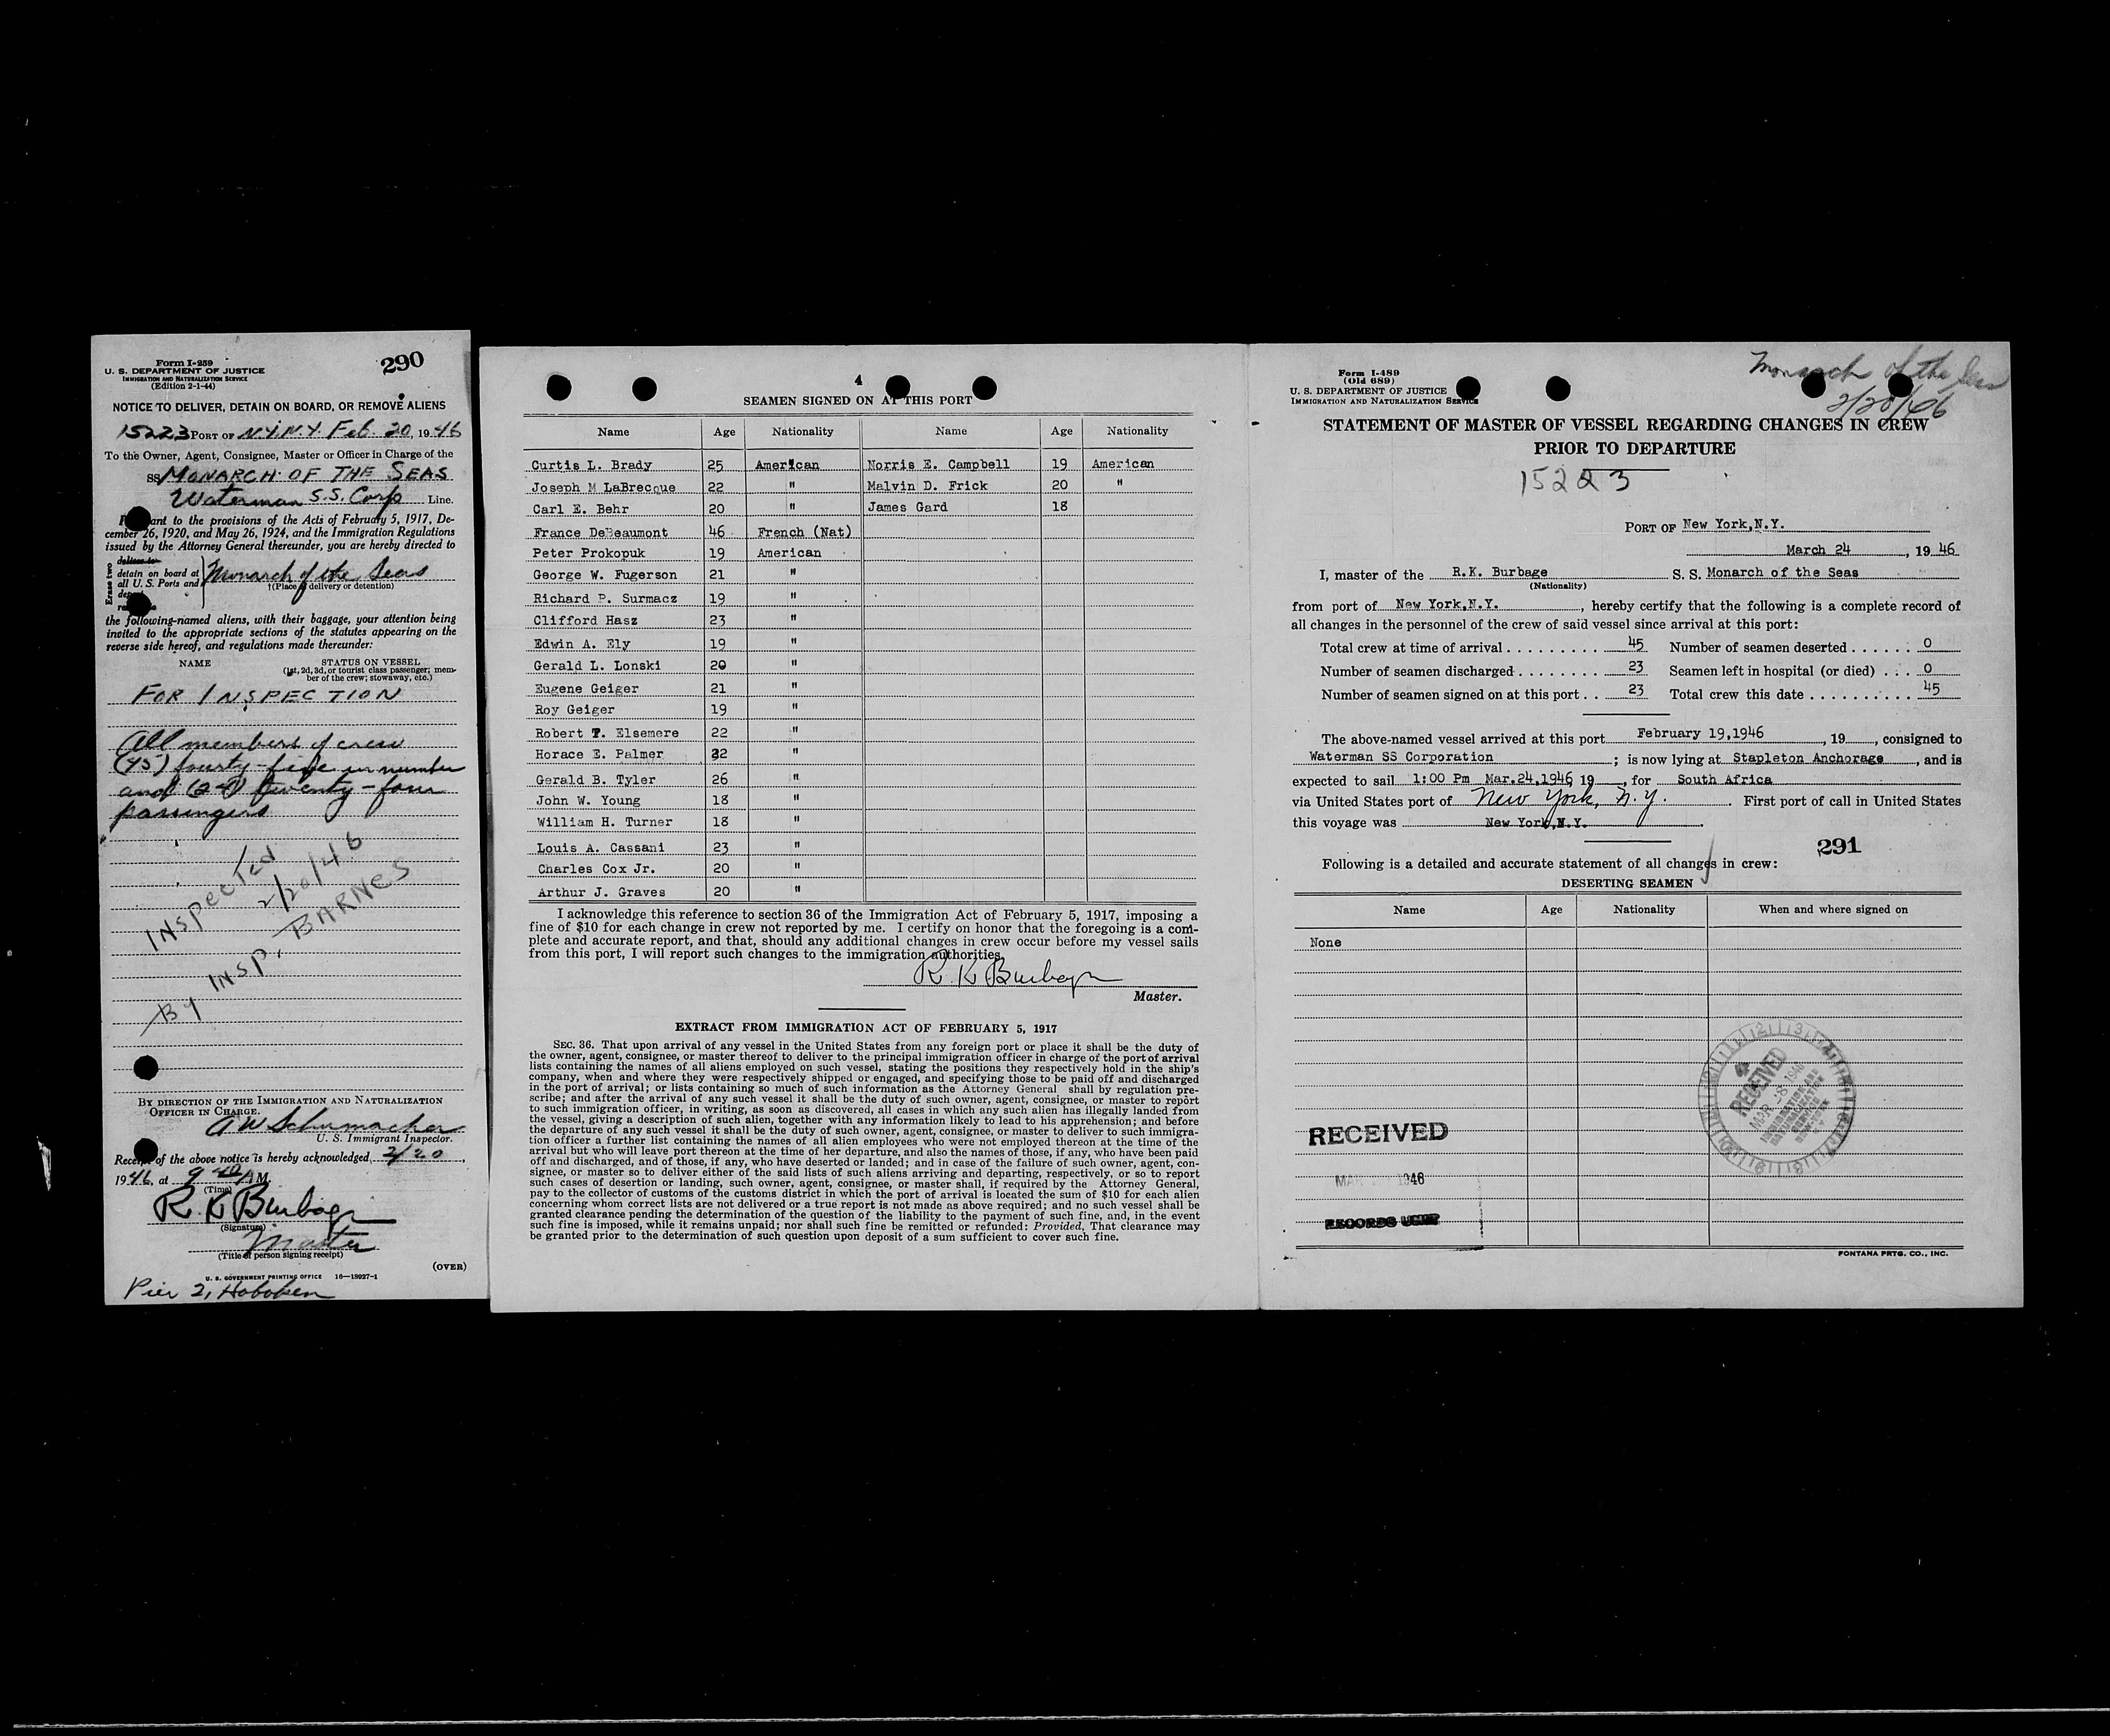 Form I-259
U. S. DEPARTMENT OF JUSTICE
IMMIGRATION AND NATURALIZATION SERVICE
(Edition 2-1-44)
290
NOTICE TO DELIVER, DETAIN ON BOARD, OR REMOVE ALIENS
15223 PORT OF N.Y. N.Y. Feb. 20, 1946
To the Owner, Agent, Consignee, Master or Officer in Charge of the
SS MONARCH OF THE SEAS
Waterman S.S. Corp Line.
ant to the provisions of the Acts of February 5, 1917, De-
cember 26, 1920, and May 26, 1924, and the Immigration Regulations
issued by the Attorney General thereunder, you are hereby directed to
Erase two
deliver to
detain on board at
all U. S. Ports and
Monarch of the Seas
†(Place of delivery or detention)
the following-named aliens, with their baggage, your attention being
invited to the appropriate sections of the statutes appearing on the
reverse side hereof, and regulations made thereunder:
NAME STATUS ON VESSEL
(1st, 2d, 3d, or tourist class passenger; mem-
ber of the crew; stowaway, etc.)
FOR INSPECTION
All members of crew
(45) fourty-five in number
and (24) twenty-four
passengers
INSPECTED
2/20/46
BY INSP. BARNES
BY DIRECTION OF THE IMMIGRATION AND NATURALIZATION
OFFICER IN CHARGE.
A W Schumacher
U. S. Immigrant Inspector.
Receipt of the above notice is hereby acknowledged 2/20,
1946, at 9 40 A M.
(Time)
R. K Burbage
(Signature)
Master
(Title of person signing receipt)
(OVER)
U. S. GOVERNMENT PRINTING OFFICE 16—18927-1
Pier 2, Hoboken
4
SEAMEN SIGNED ON AT THIS PORT
Name Age Nationality Name Age Nationality
Curtis L. Brady 25 American Norris E. Campbell 19 American
Joseph M LaBrecque 22 " Malvin D. Frick 20 "
Carl E. Behr 20 " James Gard 18
France DeBeaumont 46 French (Nat)
Peter Prokopuk 19 American
George W. Fugerson 21 "
Richard P. Surmacz 19 "
Clifford Hasz 23 "
Edwin A. Ely 19 "
Gerald L. Lonski 20 "
Eugene Geiger 21 "
Roy Geiger 19 "
Robert T. Elsemere 22 "
Horace E. Palmer 32 "
Gerald B. Tyler 26 "
John W. Young 18 "
William H. Turner 18 "
Louis A. Cassani 23 "
Charles Cox Jr. 20 "
Arthur J. Graves 20 "
I acknowledge this reference to section 36 of the Immigration Act of February 5, 1917, imposing a
fine of $10 for each change in crew not reported by me. I certify on honor that the foregoing is a com-
plete and accurate report, and that, should any additional changes in crew occur before my vessel sails
from this port, I will report such changes to the immigration authorities.
R. K Burbage
Master.
EXTRACT FROM IMMIGRATION ACT OF FEBRUARY 5, 1917
SEC. 36. That upon arrival of any vessel in the United States from any foreign port or place it shall be the duty of
the owner, agent, consignee, or master thereof to deliver to the principal immigration officer in charge of the port of arrival
lists containing the names of all aliens employed on such vessel, stating the positions they respectively hold in the ship's
company, when and where they were respectively shipped or engaged, and specifying those to be paid off and discharged
in the port of arrival; or lists containing so much of such information as the Attorney General shall by regulation pre-
scribe; and after the arrival of any such vessel it shall be the duty of such owner, agent, consignee, or master to report
to such immigration officer, in writing, as soon as discovered, all cases in which any such alien has illegally landed from
the vessel, giving a description of such alien, together with any information likely to lead to his apprehension; and before
the departure of any such vessel it shall be the duty of such owner, agent, consignee, or master to deliver to such immigra-
tion officer a further list containing the names of all alien employees who were not employed thereon at the time of the
arrival but who will leave port thereon at the time of her departure, and also the names of those, if any, who have been paid
off and discharged, and of those, if any, who have deserted or landed; and in case of the failure of such owner, agent, con-
signee, or master so to deliver either of the said lists of such aliens arriving and departing, respectively, or so to report
such cases of desertion or landing, such owner, agent, consignee, or master shall, if required by the Attorney General,
pay to the collector of customs of the customs district in which the port of arrival is located the sum of $10 for each alien
concerning whom correct lists are not delivered or a true report is not made as above required; and no such vessel shall be
granted clearance pending the determination of the question of the liability to the payment of such fine, and, in the event
such fine is imposed, while it remains unpaid; nor shall such fine be remitted or refunded: Provided, That clearance may
be granted prior to the determination of such question upon deposit of a sum sufficient to cover such fine.
Form I-489
(Old 689)
U. S. DEPARTMENT OF JUSTICE
IMMIGRATION AND NATURALIZATION SERVICE
Monarch of the Seas
2/20/46
STATEMENT OF MASTER OF VESSEL REGARDING CHANGES IN CREW
PRIOR TO DEPARTURE
15223
PORT OF New York,N.Y.
March 24, 1946
I, master of the R.K. Burbage S. S. Monarch of the Seas
(Nationality)
from port of New York,N.Y., hereby certify that the following is a complete record of
all changes in the personnel of the crew of said vessel since arrival at this port:
Total crew at time of arrival . . . . . . . . . 45 Number of seamen deserted . . . . . . 0
Number of seamen discharged . . . . . . . . 23 Seamen left in hospital (or died) . . . 0
Number of seamen signed on at this port . . 23 Total crew this date . . . . . . . . . . 45
The above-named vessel arrived at this port February 19,1946, 19, consigned to
Waterman SS Corporation; is now lying at Stapleton Anchorage, and is
expected to sail 1:00 Pm Mar.24,1946 19, for South Africa
via United States port of New York, N.Y. First port of call in United States
this voyage was New York,N.Y.
291
Following is a detailed and accurate statement of all changes in crew:
DESERTING SEAMEN
Name Age Nationality When and where signed on
None
RECEIVED
MAR 1946
RECORDS UNIT
RECEIVED
FONTANA PRTG. CO., INC.